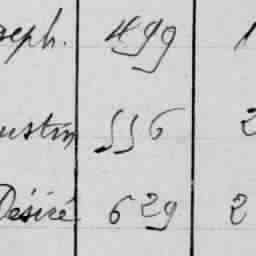 seph. 499 1
ustin 556 2
Désiré 629 2